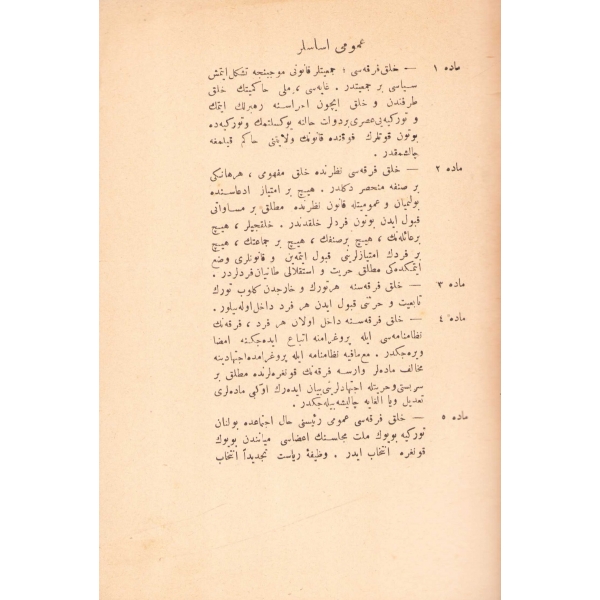 عمومی اساسلر
ماده ۱ — خلق فرقه‌سی ؛ جمعیتلر قانونی موجبنجه تشکل ایتمش
سیاسی بر جمعیتدر . غایه‌سی ، ملی حاکمیتك خلق
طرفندن و خلق ایچون اجراسنه رهبرلك ایتمك
و تورکیه‌یی عصری بر دولت حالنه یوکسلتمك و تورکیه‌ده
بوتون قوتلرك فوقنده قانونك ولایتنی حاکم قیلمغه
چالشمقدر .
ماده ۲ — خلق فرقه‌سی نظرنده خلق مفهومی ، هرهانکی
بر صنفه منحصر دکلدر . هیچ بر امتیاز ادعاسنده
بولنمیان و عمومیتله قانون نظرنده مطلق بر مساواتی
قبول ایدن بوتون فردلر خلقدندر . خلقجیلر ، هیچ
بر عائله‌نك ، هیچ بر صنفك ، هیچ بر جماعتك ، هیچ
بر فردك امتیازلرینی قبول ایتمه‌ین و قانونلری وضع
ایتمکده‌کی مطلق حریت و استقلالی طانییان فردلردر .
ماده ۳ — خلق فرقه‌سنه هر تورك و خارجدن کلوب تورك
تابعیت و حرثنی قبول ایدن هر فرد داخل اوله‌بیلور .
ماده ٤ — خلق فرقه‌سنه داخل اولان هر فرد ، فرقه‌نك
نظامنامه‌سی ایله پروغرامنه اتباع ایده‌جکنه امضا
ویره‌جکدر . مع‌مافیه نظامنامه ایله پروغرامده اجتهادینه
مخالف ماده‌لر وارسه فرقه‌نك قونغره‌لرنده مطلق بر
سربستی و حریتله اجتهادلرینی بیان ایده‌رك اوکبی ماده‌لری
تعدیل ویا الغایه چالیشه‌بیله‌جکدر .
ماده ٥ — خلق فرقه‌سی عمومی رئیسنی حال اجتماعده بولنان
تورکیه بویوك ملت مجلسنك اعضاسی میانندن بویوك
قونغره انتخاب ایدر . وظیفهٔ ریاست تجدیداً انتخاب